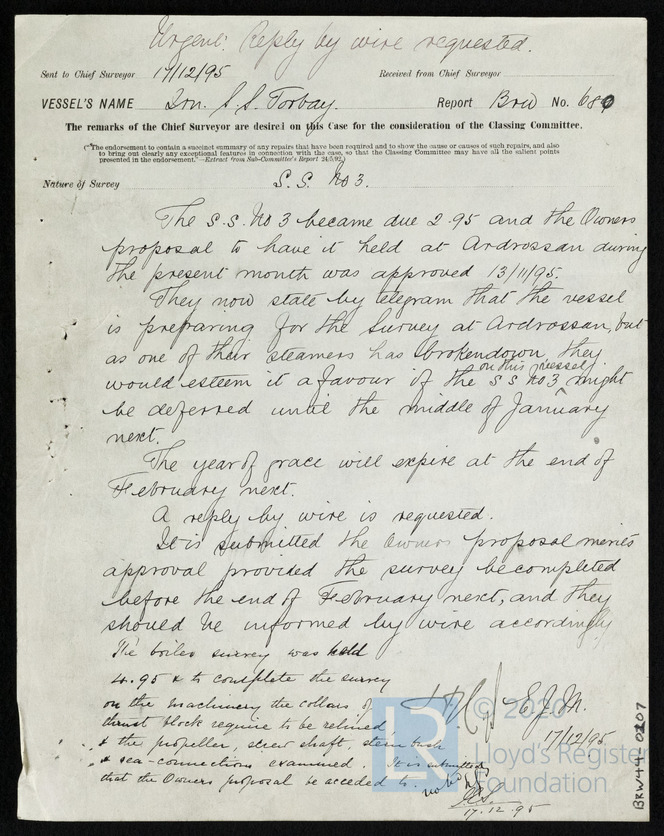 Urgent: Reply by wire requested.
Sent to Chief Surveyor 17/12/95 Received from Chief Surveyor
VESSEL'S NAME Iron S.S. Torbay. Report Brw No. 680
The remarks of the Chief Surveyor are desired on this Case for the consideration of the Classing Committee.
("The endorsement to contain a succinct summary of any repairs that have been required and to show the cause or causes of such repairs, and also
to bring out clearly any exceptional features in connection with the case, so that the Classing Committee may have all the salient points
presented in the endorsement."—Extract from Sub-Committee's Report 24/5/92.)
Nature of Survey S.S. No 3.
The S.S. No 3 became due 2.95 and the Owners
proposal to have it held at Ardrossan during
the present month was approved 13/11/95.
They now state by telegram that the vessel
is preparing for the Survey at Ardrossan, but
as one of their steamers has brokendown they
would esteem it a favour if the S S No 3 on this vessel might
be deferred until the middle of January
next.
The year of grace will expire at the end of
February next.
A reply by wire is requested.
It is submitted the Owners proposal merits
approval provided the survey be completed
before the end of February next, and they
should be informed by wire accordingly
The boiler survey was held
4.95 & to complete the survey
on the machinery the collars of
thrust block require to be relined,
& the propeller, screw shaft, stern bush
& sea-connections examined. It is submitted
that the Owners proposal be acceded to.
E.J.M.
17/12/95
17.12.95
© 2020
Lloyd's Register
Foundation
LR
BRW44-0207